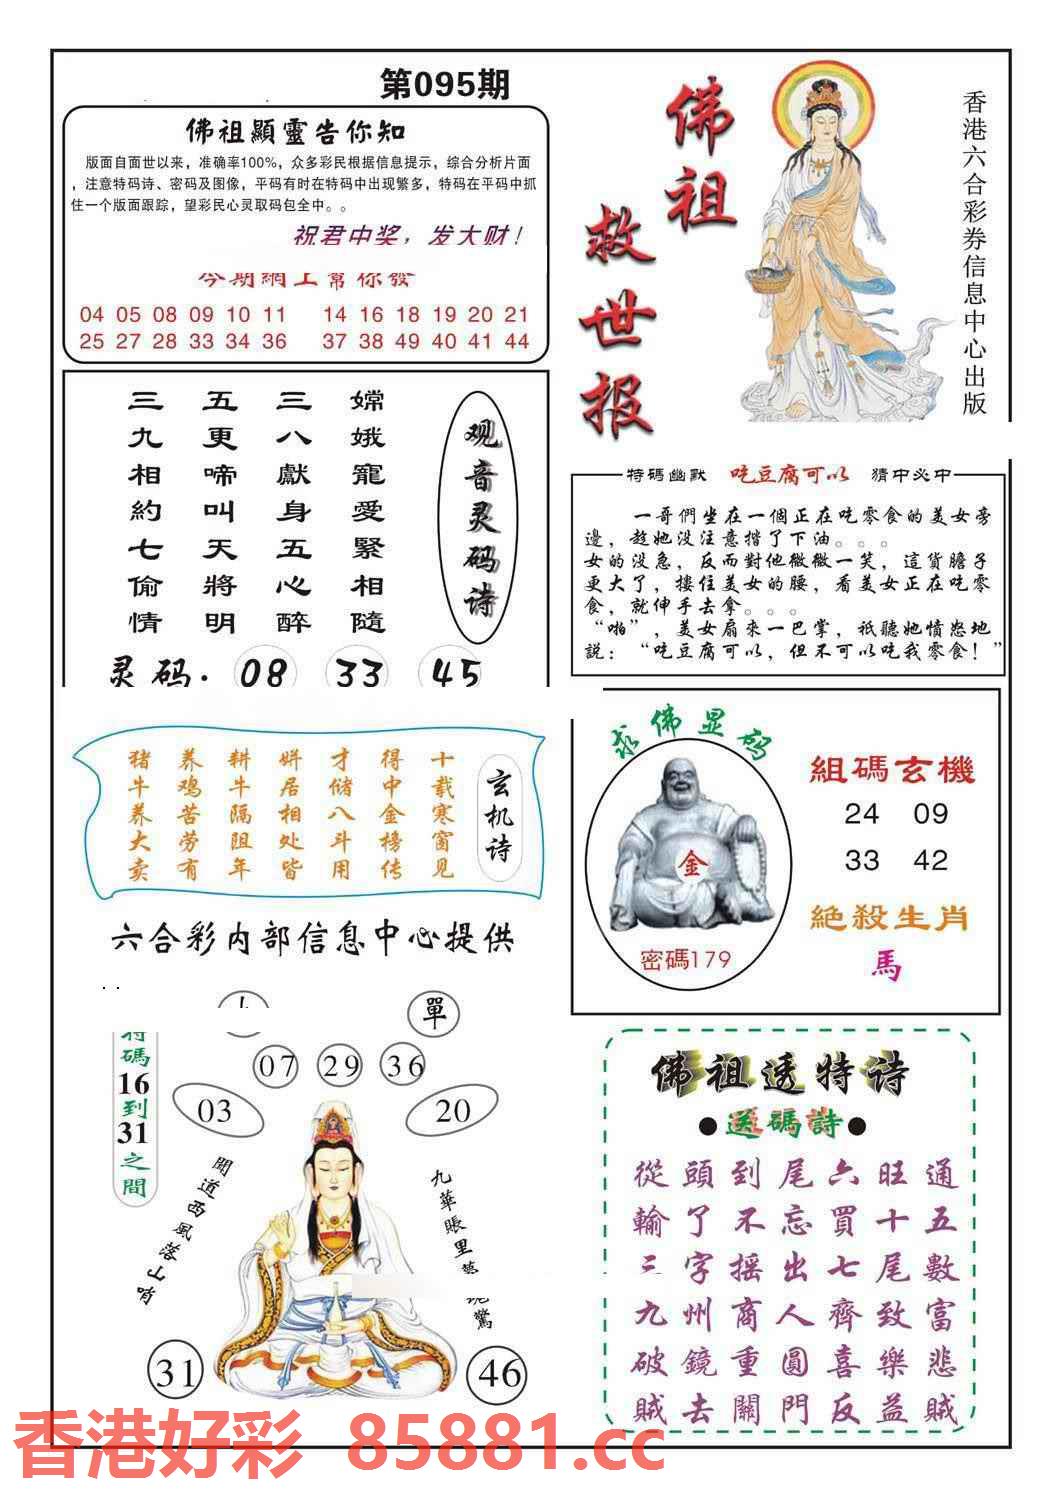 第095期
佛祖顯靈告你知
版面自面世以来，准确率100%，众多彩民根据信息提示，综合分析片面
，注意特码诗、密码及图像，平码有时在特码中出现繁多，特码在平码中抓
住一个版面跟踪，望彩民心灵取码包全中。。
祝君中奖，发大财！
今期網上幫你發
04 05 08 09 10 11 14 16 18 19 20 21
25 27 28 33 34 36 37 38 49 40 41 44
佛祖
救世报
香港六合彩券信息中心出版
观音灵码诗
嫦娥寵愛緊相隨
三八獻身五心醉
五更啼叫天將明
三九相約七偷情
灵码. 08 33 45
特碼幽默 吃豆腐可以 猜中必中
一哥們坐在一個正在吃零食的美女旁
邊，趁她没注意揩了下油。。。
女的没急，反而對他微微一笑，這貨膽子
更大了，摟住美女的腰，看美女正在吃零
食，就伸手去拿。。。
“啪”，美女扇來一巴掌，祇聽她憤怒地
説：“吃豆腐可以，但不可以吃我零食！”
玄机诗
十载寒窗见
得中金榜传
才储八斗用
姘居相处皆
耕牛隔阻年
养鸡苦劳有
猪牛养大卖
六合彩内部信息中心提供
求佛显码
金
密碼179
組碼玄機
24 09
33 42
絕殺生肖
馬
單
07 29 36
03 20
特碼16到31之間
聞道西風落山哨
九華賬里夢魂驚
31 46
佛祖透特诗
●送碼詩●
從頭到尾六旺通
輸了不忘買十五
三字摇出七尾數
九州商人齊致富
破鏡重圓喜樂悲
賊去關門反益賊
香港好彩 85881.cc